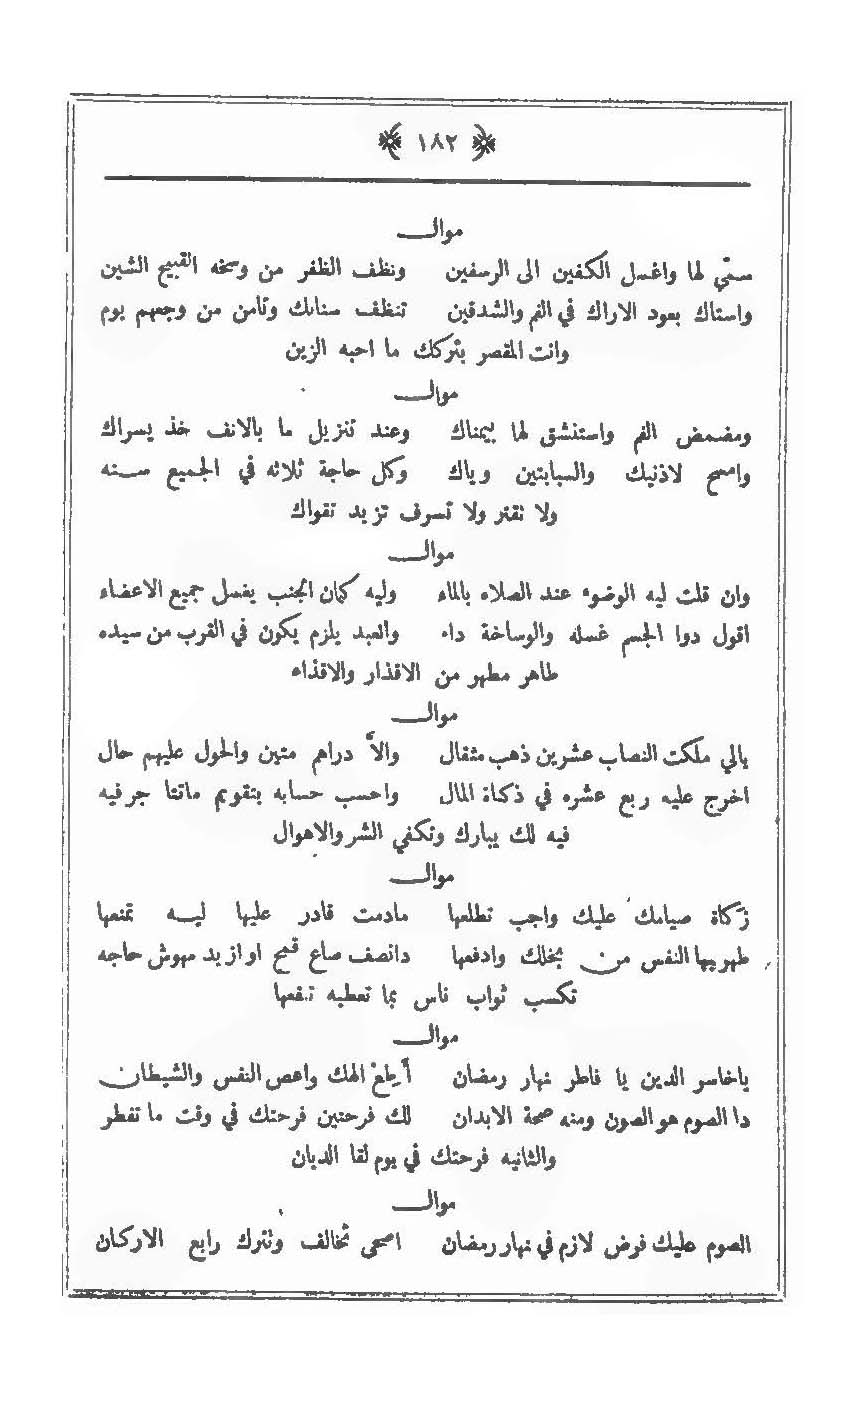 ١٨٢
موال
سمّي لها واغسل الكفين الى الرسغين ونظف الظفر من وسخه القبيح الشين
واستاك بعود الاراك في الفم والشدقين تنظف سنانك وتامن من وجعهم يوم
وانت المقصر بتركك ما احبه الزين
موال
ومضمض الفم واستنشق لها بيمناك وعند تنزيل ما بالانف خذ يسراك
وامسح لاذنيك والسبابتين وياك وكل حاجة ثلاثه في الجميع سنه
ولا تقتر ولا تسرف تزيد تقواك
موال
وان قلت ليه الوضوء عند الصلاه بالماء وليه كمان الجنب يغسل جميع الاعضاء
اقول دوا الجسم غسله والوساخة داء والعبد يلزم يكون في القرب من سيده
طاهر مطهر من الاقذار والاقذاء
موال
يالي ملكت النصاب عشرين ذهب مثقال والاّ دراهم متين والحول عليهم حال
اخرج عليه ربع عشره في ذكاة المال واحسب حسابه بتقويم ماتتا جر فيه
فيه لك يبارك وتكفي الشر والاهوال
موال
زكاة صيامك عليك واجب تطلعها مادمت قادر عليها ليه تمنعها
طهر بها النفس من بخلك وادفعها دانصف صاع قمح او ازيد مهوش حاجه
تكسب ثواب ناس بما تعطيه تنفعها
موال
ياخاسر الدين يا فاطر نهار رمضان أطِعْ الهك واعص النفس والشيطان
دا الصوم هو الصون ومنه صحة الابدان لك فرحتين فرحتك في وقت ما تفطر
والثانيه فرحتك في يوم لقا الديان
موال
الصوم عليك فرض لازم في نهار رمضان اصحى تخالف وتترك رابع الاركان